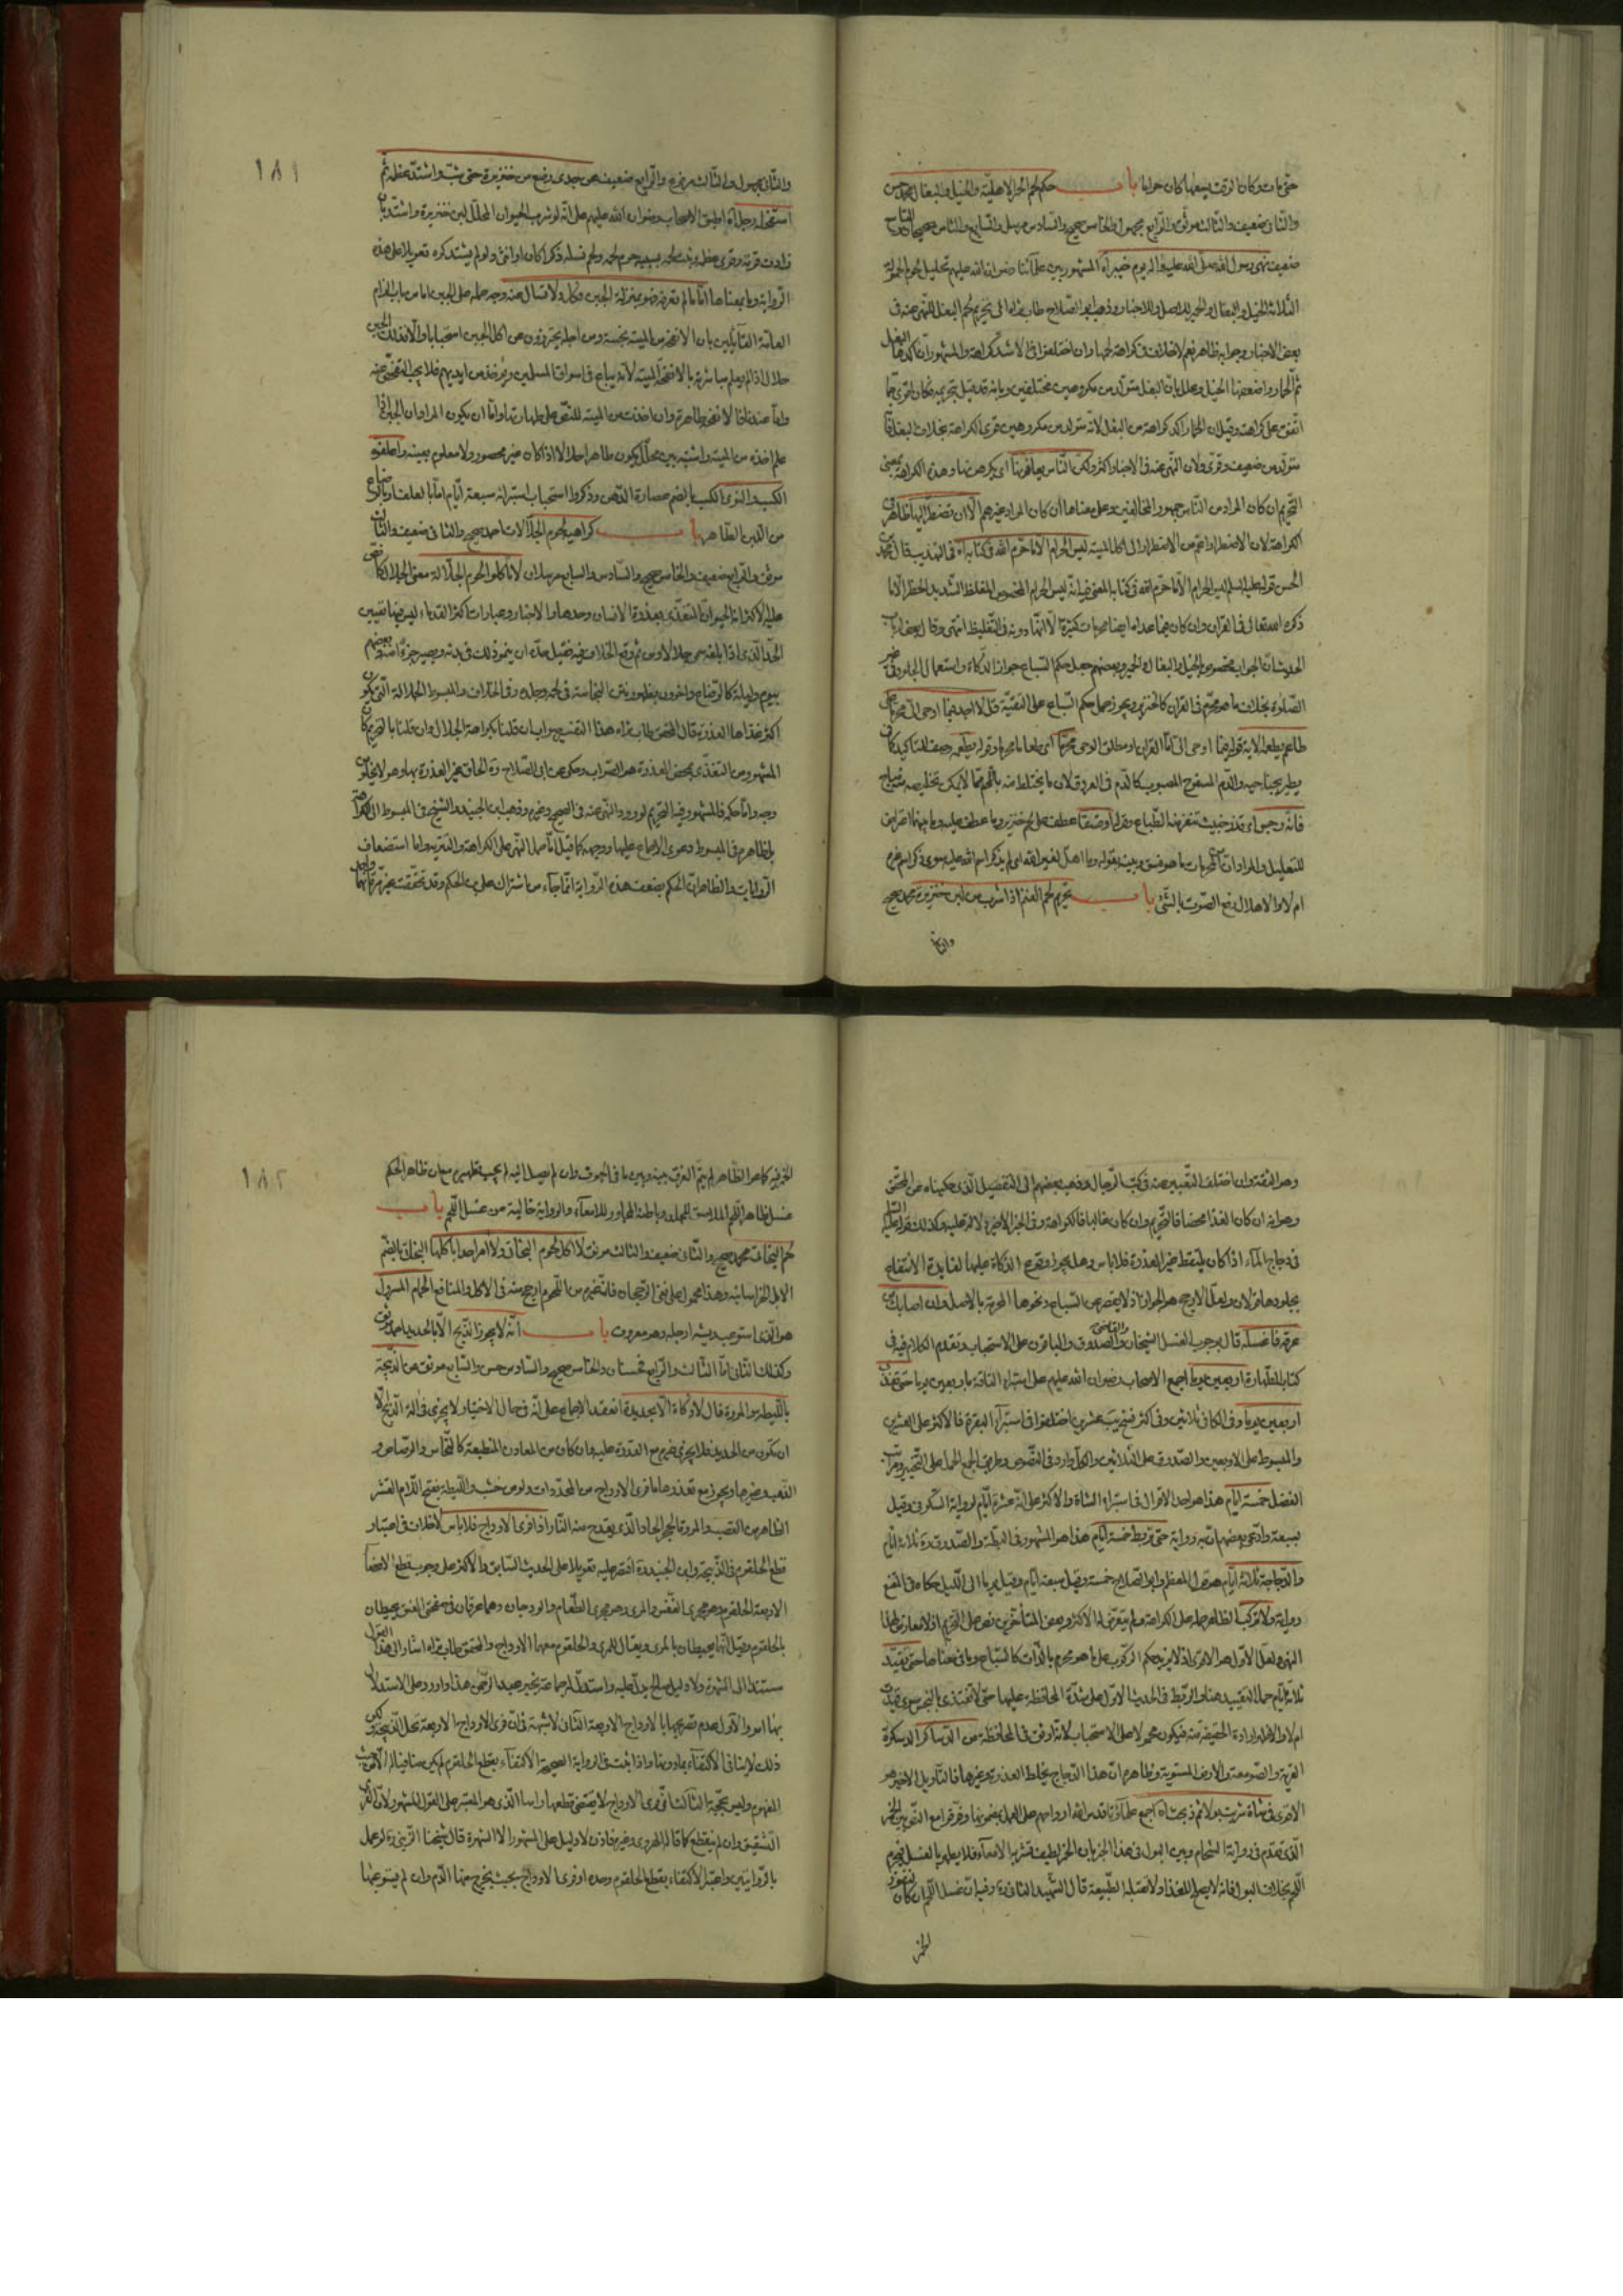 حتى مات وكان لو تمت لبيعها كان حراما باب حكم لحم الحمر الاهلية والخيل والبغال محمد حسن
والثاني ضعيف والثالث موثق والرابع مجهول والخامس صحيح والسادس مرسل والسابع والثامن صحيحان والتاسع
ضعيف نهى رسول الله صلى الله عليه وآله يوم خيبر آه المشهور بين علمائنا رضوان الله عليهم تحليل لحوم الحمولة
الثلاثة الخيل والبغال والحمير للاصل والاخبار وذهب ابو الصلاح طاب ثراه الى تحريم لحم البغل للنهي عنه في
بعض الاخبار وجوابه ظاهر نعم لا خلاف في كراهة لحمها وان اختلفوا في الاشد كراهة والمشهور ان آكدها البغل
ثم الحمار واضعفها الخيل وعلل بان البغل متولد من مكروهين مختلفين وبانه قد قيل بتحريمه فكان اقوى مما
اتفق على كراهته وقيل ان الحمار آكد كراهة من البغل لانه متولد من مكروهين قوى الكراهة بخلاف البغل فانه
متولد من ضعيف وقوى ولان النهي عنه في الاخبار اكثر ولكن الناس يعافونها اى يكرهونها وهذه الكراهة بمعنى
التحريم ان كان المراد من الناس جمهور المخالفين وعلى معناها ان كان المراد غيرهم الا ان تضطر اليها ظاهره
الكراهة لان الاضطرار اعم من الاضطرار الى اكل الميتة ليس الحرام الا ما حرم الله في كتابه آه في التهذيب قال محمد
الحسن قوله عليه السلم ليس الحرام الا ما حرم الله في كتابه المعنى فيه انه ليس الحرام المخصوص المغلظ الشديد الحظر الا ما
ذكره الله تعالى في القرآن وان كان فيما عداه ايضا محرمات كثيرة الا انها دونه في التغليظ انتهى وقال بعض
الحديث ان الجواب مخصوص بالخيل والبغال والحمير وبعضهم جعل حكم السباع جواز الذكاة واستعمال الجلود في غير
الصلوة بخلاف ما هو محرم في القرآن كالخنزير ويجوز حمل حكم السباع على التقية قل لا اجد فيما اوحى الى محرما على
طاعم يطعمه الاية قوله فيما اوحى الى اما القرآن او مطلق الوحى محرما اى طعاما محرما وقوله يطعمه وصف للتاكيد كما في
يطير بجناحيه والدم المسفوح المصبوب كالدم في العروق لان ما يختلط منه باللحم مما لا يمكن تخليصه منه مباح
فانه رجس اى قذر خبيث تتنفر منه الطباع وقوله او فسقا عطف على لحم خنزير وما عطف عليه وما بينهما اعتراض
للتعليل والمراد ان المحرمات ما هو فسق وبينه بقوله وما اهل لغير الله اى لم يذكر اسم الله عليه سوى ذكر اسم غيره
ام لا والاهلال رفع الصوت بالشئ باب تحريم لحم الغنم اذا شرب من لبن خنزيرة محمد صحيح
والثاني
١٨١
والثاني مجهول والثالث مرفوع والرابع ضعيف عن جدى رضع من خنزيرة حتى شب واشتد عظمه ثم
استفحله رجل آه اطبق الاصحاب رضوان الله عليهم على انه لو شرب الحيوان المحلل لبن خنزيرة واشتد بان
زادت قوته وقوى عظمه ونبت لحمه بسببه حرم لحمه ولحم نسله ذكرا كان او انثى ولو لم يشتد كره تعويلا على هذه
الرواية وما بمعناها اما ما لم تعرفه فهو بمنزلة الجبن وكل ولا تسأل عنه وجه حمله على الجبن اما من باب الزام
العامة القائلين بان الانفحة من الميتة نجسة ومن اجله يحترزون عن اكل الجبن استحبابا والا فذلك الجبن
حلال اذا لم يعلم مباشرته بالانفحة الميتة لانه يباع في اسواق المسلمين ويؤخذ من ايديهم فلا يجب التفحص عنه
واما عندنا فالانفحة طاهرة وان اخذت من الميتة للنص على طهارتها واما ان يكون المراد ان الجبن اذا
علم اخذه من الميتة واشتبه بين محال يكون طاهرا حلالا اذا كان غير محصور ولا معلوم بعينه واعلفوه
الكسب والنوى الكسب بالضم عصارة الدهن وذكروا استحباب استبرائه سبعة ايام اما بالعلف او بالرضاع
من اللبن الطاهر باب كراهية لحوم الجلالات احمد صحيح والثاني ضعيف والثالث
موثق والرابع ضعيف والخامس صحيح والسادس والسابع مرسلان لا تاكلوا لحوم الجلالة معنى الجلال كما نص
عليه الاكثر انه الحيوان المتغذى بعذرة الانسان وحدها والاخبار وعبارات اكثر القدماء ليس فيها تعيين
الحد الذى اذا بلغه سمى جلالا ومن ثم وقع الخلاف فيه فقيل حده ان ينمو ذلك في بدنه ويصير جزءا منه وبعضهم
بيوم وليلة كالرضاع واخرون بظهور نتن النجاسة في لحمه وجلده وفي الخلاف والمبسوط الجلالة التى يكون
اكثر غذاها العذرة قال المحقق طاب ثراه هذا التفسير صواب ان قلنا بكراهة الجلال وان قلنا بالتحريم كان
المشهور من التغذى بمحض العذرة هو الصواب وحكى عن ابى الصلاح ره الحاق غير العذرة بها وهو لا يخلو من
وجه واما حكمه فالمشهور فيه التحريم لورود النهى عنه في الصحيح وغيره وذهب ابن الجنيد والشيخ في المبسوط الى الكراهة
بل ظاهره في المبسوط دعوى الاجماع عليها ووجهه كما قيل اما حمل النهى على الكراهة والتنزيه واما استضعاف
الروايات والظاهر ان الحكم بضعف هذه الرواية انما جاء من اشتراك على بن الحكم وقد تحققت غير مرة انه واحد
وهو الثقة وان اختلف التعبير عنه في كتب الرجال وذهب بعضهم الى التفصيل الذى حكيناه عن المحقق
وهو انه ان كان الغذاء محضا فالتحريم وان كان غالبا فالكراهة وفي الخبر الاخير دلالة عليه وكذلك قوله عليه السلام
في دجاج الماء اذا كان يلتقط غير العذرة فلا باس وهل يجوز وقوع الذكاة عليها لفايدة الانتفاع
بجلودها قولان ولعل الاوجه هو الجواز اذ لا يقصر عن السباع ونحوها المحرمة بالاصل وان اصابك من
عرقه فاغسله قال بوجوب الغسل الشيخان والصدوق والقاضى والباقون على الاستحباب وتقدم الكلام فيه في
كتاب الطهارة اربعين يوما اجمع الاصحاب رضوان الله عليهم على استبراء الناقة باربعين يوما حتى تغذى
اربعين يوما وفي الكافى ثلاثين وفي اكثر نسخ يب عشرين اختلفوا في استبراء البقرة فالاكثر على العشرين
والمبسوط على الاربعين والصدوق على الثلاثين والكل وارد في النصوص وطريق الجمع الحمل على التخيير ومراتب
الفضل خمسة ايام هذا هو احد الاقوال في استبراء الشاة والاكثر على انه عشرة ايام لرواية السكونى وقيل
بسبعة وادعى بعضهم ان به رواية حتى تربط خمسة ايام هذا هو المشهور في البطة والصدوق ره ثلاثة ايام
والدجاجة ثلاثة ايام هو قول المعظم وابو الصلاح خمسة وقيل سبعة ايام وقيل يوما الى الليل حكاه في المقنع
رواية ولا تركب الظاهر حمله على الكراهة ولم يتعرض لها الاكثر وبعض المتأخرين نص على التحريم اولا معارض لهذا
النهى ولعل الاول هو الاقوى اذ لا يزيد حكم الركوب على ما هو محرم بالذات كالسباع وما في معناها حتى يقيد
ثلاثة ايام حمل التقييد هنا والربط في الحديث الاول على شدة المحافظة عليها حتى لا تغتذى بالنجس سوى قيدت
ام لا والاظهر ارادة الحقيقة منه فيكون محمولا على الاستحباب لانه اوفق في المحافظة من الدساكر الدسكرة
القرية والصومعة والارض المستوية وظاهره ان هذا الدجاج يخلط العذرة مع غيرها فالتأويل الاخير هو
الاقوى في شاة شربت بولا ثم ذبحت آه اجمع علماؤنا قدس الله ارواحهم على العمل بمضمونها وفرقوا مع التسوية بين الخمر
الذى تقدم في رواية الشحام وبين البول في هذا الخبر بان الخمر لطيف تشربه الامعاء فلا يطهر بالغسل فيحرم
اللحم بخلاف البول فانه لا يصلح للغذاء ولا تقبله الطبيعة قال الشهيد الثانى ره وفيه ان غسل اللحم ان كان لنفوذ
الخمر
١٨٢
الخمر فيه كما هو الظاهر لم يتم الفرق بينه وبين ما في الجوف وان لم يصل اليه لم يجب تطهيره مع ان ظاهر الحكم
غسل ظاهر اللحم الملاصق للجلد وباطنه المجاور للامعاء والرواية خالية من غسل اللحم باب
لحم البخاتى محمد صحيح والثانى ضعيف والثالث موثق لا آكل لحوم البخاتى ولا آمر احدا باكلها البخاتى بالضم
الابل الخراسانية وهذا محمول على نفى الرجحان فان غيره من اللحوم ارجح منه في الاكل والمنافع الحمام المسرول
هو الذى استوعب ريشه ارجله وهو معروف باب انه لا يجوز الذبح الا بالحديد احمد موثق
وكذلك الثانى اما الثالث والرابع فحسنان والخامس صحيح والسادس حسن والسابع موثق عن الذبيحة
بالليطة والمروة فقال لا ذكاة الا بحديدة انعقد الاجماع على انه في حال الاختيار لا يجزى في آلة الذبح الا
ان تكون من الحديد فلا يجزى غيره مع القدرة عليه وان كان من المعادن المنطبعة كالنحاس والرصاص و
الذهب وغيرها ويجوز مع تعذرها ما فرى الاوداج من المحددات ولو من خشب والليطة بفتح اللام القشر
الظاهر من القصب والمروة الحجر الحاد الذى يقدح منه النار اذا فرى الاوداج فلا باس لا خلاف في اعتبار
قطع الحلقوم في الذبيحة وابن الجنيد ره اقتصر عليه تعويلا على الحديث السابق والاكثر على وجوب قطع الاعضاء
الاربعة الحلقوم وهو مجرى النفس والمرى وهو مجرى الطعام والودجان وهما عرقان في صفحتى العنق يحيطان
بالحلقوم وقيل انهما يحيطان بالمرى ويقال للمرى والحلقوم معهما الاوداج والمحقق طاب ثراه اشار الى هذا القول
مستندا الى الشهرة ولا دليل صالح يدل عليه واستدل لجماعة بخبر عبد الرحمن هذا واورد على الاستدلال
بها امور الاول عدم تصريحها بالاوداج الاربعة الثانى لا شبهة في ان فرى الاوداج الاربعة تحل الذبيحة ولكن
ذلك لا ينافى الاكتفاء بما دونها واذا ثبت في الرواية الصحيحة الاكتفاء بقطع الحلقوم لم يكن منافيا له الا من حيث
المفهوم وليس بحجة الثالث ان فرى الاوداج لا يقتضى قطعها راسا الذى هو المعتبر على القول المشهور لان الفرى
الشقيق وان لم ينقطع كما قاله الهروى وغيره فاذن لا دليل على المشهور الا الشهرة قال شيخنا الزينى ره لو عمل
بالروايتين واعتبر الاكتفاء بقطع الحلقوم وحده او فرى الاوداج بحيث يخرج منها الدم وان لم يستوعبها